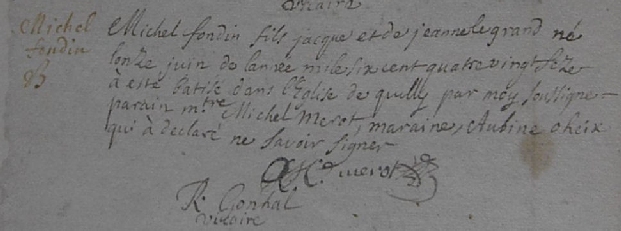 vicaire
Michel
fondin
B
Michel fondin fils jacque et de jeanne le grand né
lonze juin de lannee mile six cent quatre vingt seze
à esté batisé dans l'Eglise de quilly par moy soussigné
parain m.tre Michel merot, maraine, Aubine oheix
qui à declaré ne savoir signer
merot
R Gonhal
vicaire